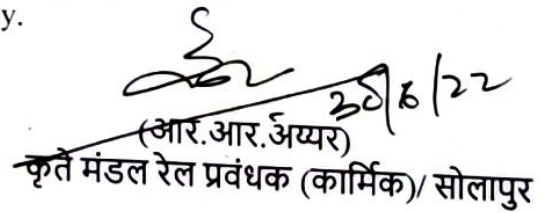 y.
30/6/22
(आर.आर.अय्यर)
कृते मंडल रेल प्रवंधक (कार्मिक)/ सोलापुर